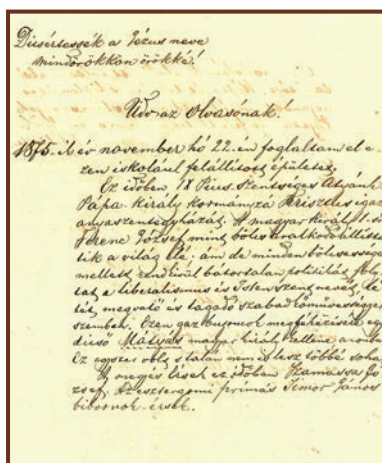 Dicsértessék a Jézus neve
mindörökkön örökké!
Üdv az Olvasónak!
1875-ik év november hó 22-én foglaltam el e-
zen iskolául felállított épületet.
Ez időben IX Pius Szentséges Atyánk
Pápa király kormányzá Krisztus igaz
anyaszentegyházát. A magyar király I-ső
Ferenc József mint bölcs uralkodó állítta-
tik a világ elé; ám de minden bölcsessége
mellett rendkívül bátortalan politikát foly-
tat a liberalismus és Isten szent nevét, lé-
tét megvető és tagadó szabadkőművességgel
szemben. Ezen gaz megfékezésére egy
dicső Mátyás magyar király kellene azonban
Ez egyszer volt s talán nem is lesz többé soha.
A megyés érsek ez időben Szamassa Jó-
zsef. Az esztergomi prímás Simor János
bibornok-érsek.